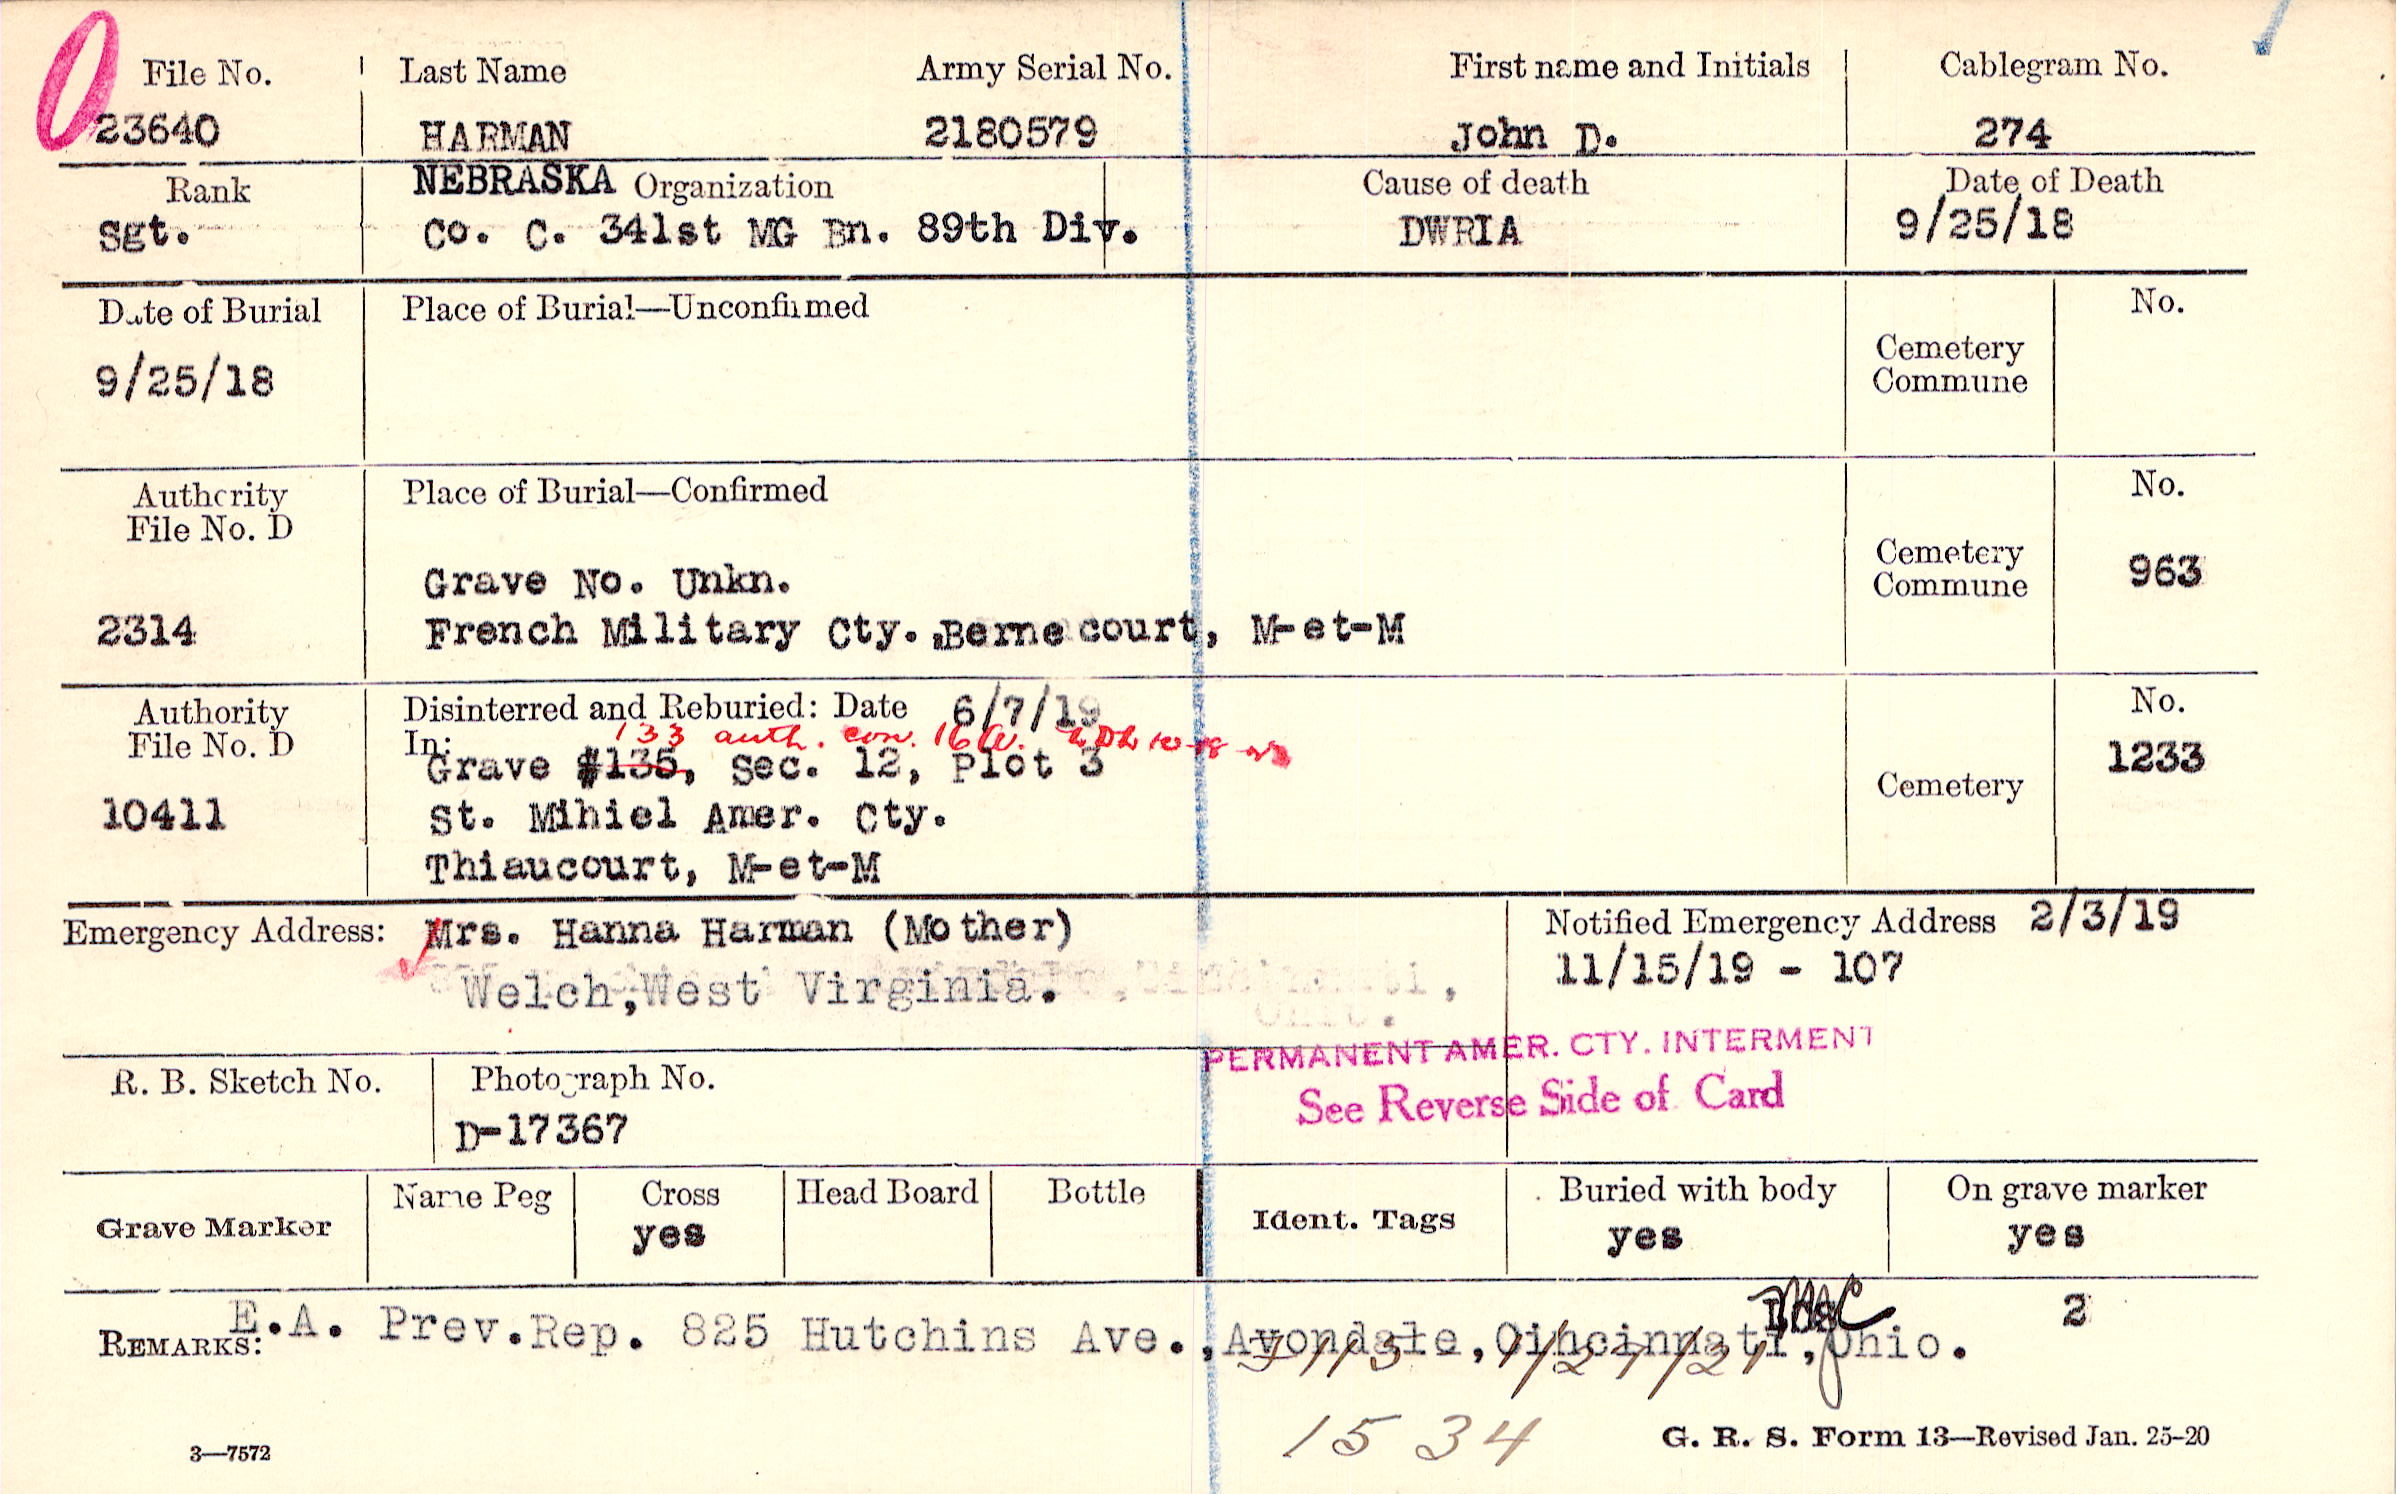 File No. Last Name Army Serial No. First name and Initials Cablegram No.
23640 HARMAN 2180579 John D. 274
Rank NEBRASKA Organization Cause of death Date of Death
Sgt. Co. C. 341st MG Bn. 89th Div. DWRIA 9/25/18
Date of Burial Place of Burial—Unconfirmed No.
9/25/18 Cemetery
Commune
Authority Place of Burial—Confirmed No.
File No. D
Cemetery
Commune 963
Grave No. Unkn.
2314 French Military Cty. Bernecourt, M-et-M
Authority Disinterred and Reburied: Date 6/7/19 No.
File No. D In: 133 auth. cor.
Grave #135, Sec. 12, Plot 3 1233
Cemetery
10411 St. Mihiel Amer. Cty.
Thiaucourt, M-et-M
Emergency Address: Mrs. Hanna Harman (Mother) Notified Emergency Address 2/3/19
Welch, West Virginia. 11/15/19 - 107
PERMANENT AMER. CTY. INTERMENT
R. B. Sketch No. Photograph No. See Reverse Side of Card
D-17367
Grave Marker Name Peg Cross Head Board Bottle Ident. Tags Buried with body On grave marker
yes yes yes
2
REMARKS: E.A. Prev.Rep. 825 Hutchins Ave., Avondale, Cincinnati, Ohio.
1/27/21
1534
3—7572 G. R. S. Form 13—Revised Jan. 25-20